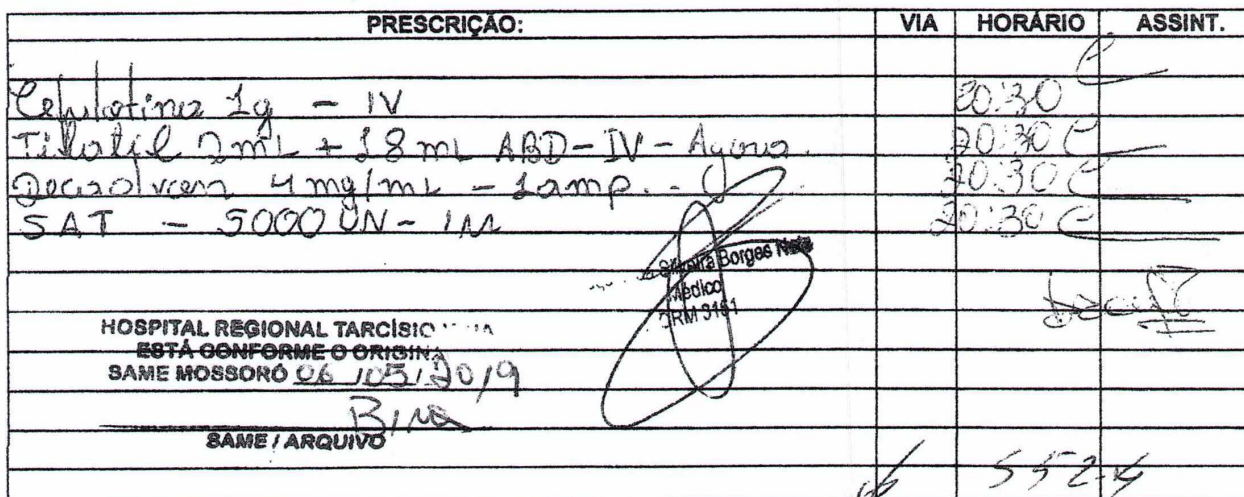 PRESCRIÇÃO: VIA HORÁRIO ASSINT.
Cefalotina 1g - IV 20:30
Tilatil 2mL + 18 mL ABD - IV - Agora. 20:30
4 mg/mL - 1amp. - 20:30
SAT - 5000 UN - IM 20:30
Silveira Borges Neto
Médico
CRM 3161
HOSPITAL REGIONAL TARCÍSIO
ESTÁ CONFORME O ORIGINA
SAME MOSSORÓ 06/05/2019
SAME / ARQUIVO